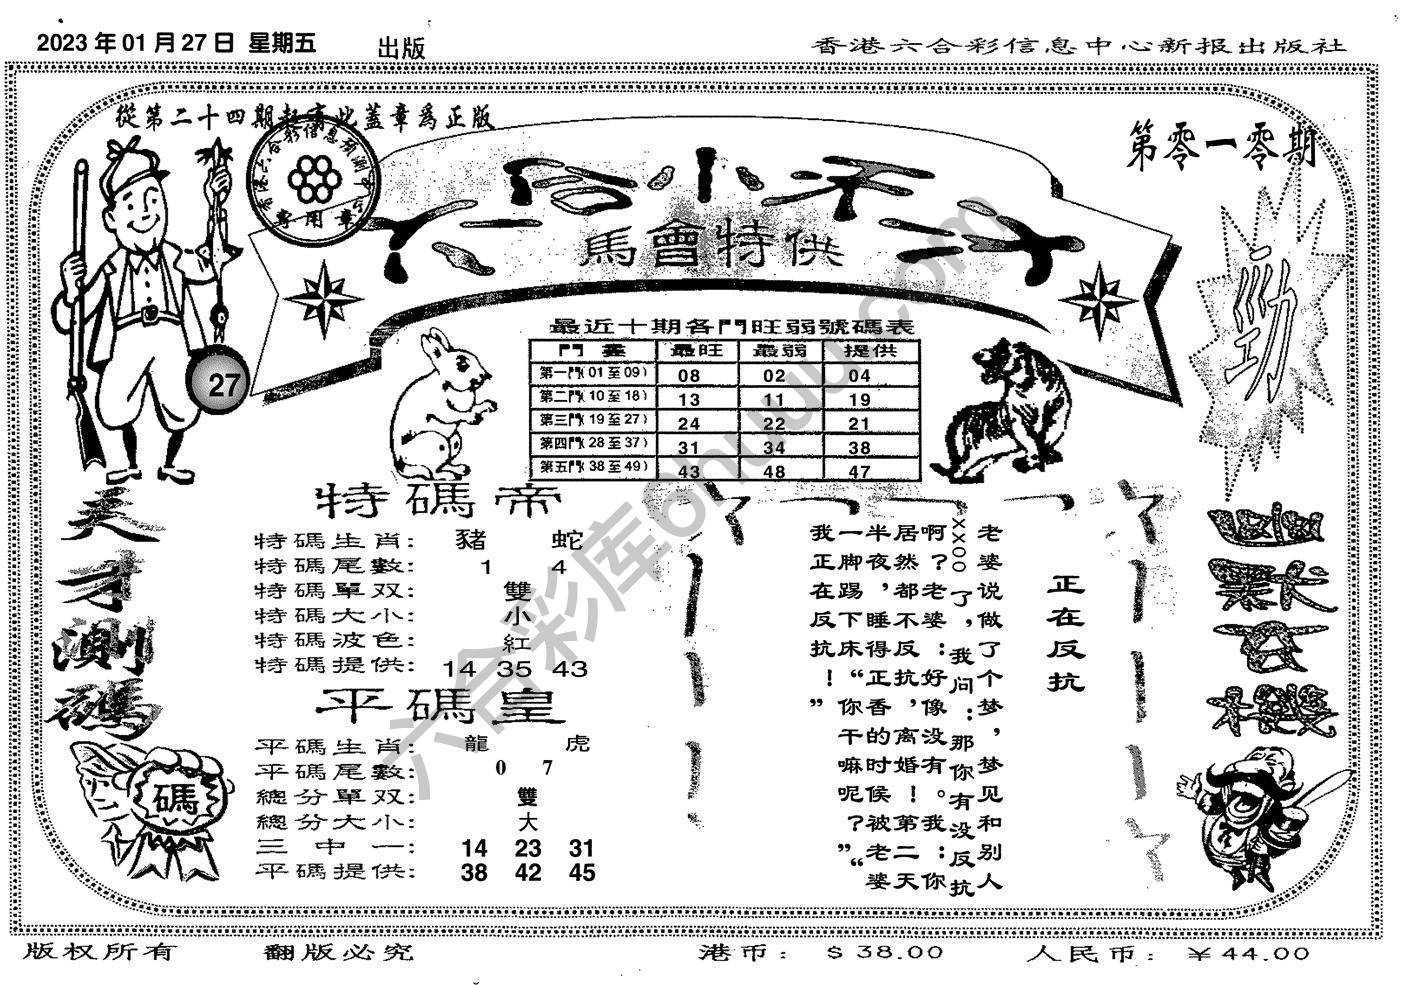 2023 年 01 月 27 日 星期五 出版
香港六合彩信息中心新报出版社
從第二十四期起 此蓋章爲正版
第零一零期
專用章
馬會特供
勁
27
最近十期各門旺弱號碼表
門 最旺 最弱 提供
第一門(01至09) 08 02 04
第二門(10至18) 13 11 19
第三門(19至27) 24 22 21
第四門(28至37) 31 34 38
第五門(38至49) 43 48 47
天才測碼
特碼帝
特碼生肖: 豬 蛇
特碼尾數: 1 4
特碼單双: 雙
特碼大小: 小
特碼波色: 紅
特碼提供: 14 35 43
平碼皇
平碼生肖: 龍 虎
平碼尾數: 0 7
總分單双: 雙
總分大小: 大
三中一: 14 23 31
平碼提供: 38 42 45
碼
正在反抗
老婆说做了个梦，梦见和别人
XXOO了，我问：那你有没反抗
啊？老婆：好像没有。我：你
居然都不反抗，离婚！第二天
半夜，睡得正香的时候被老婆
一脚踢下床：“你干嘛呢？”
我正在反抗！”
六合彩库6huuu.com
版权所有 翻版必究 港币：$38.00 人民币：￥44.00